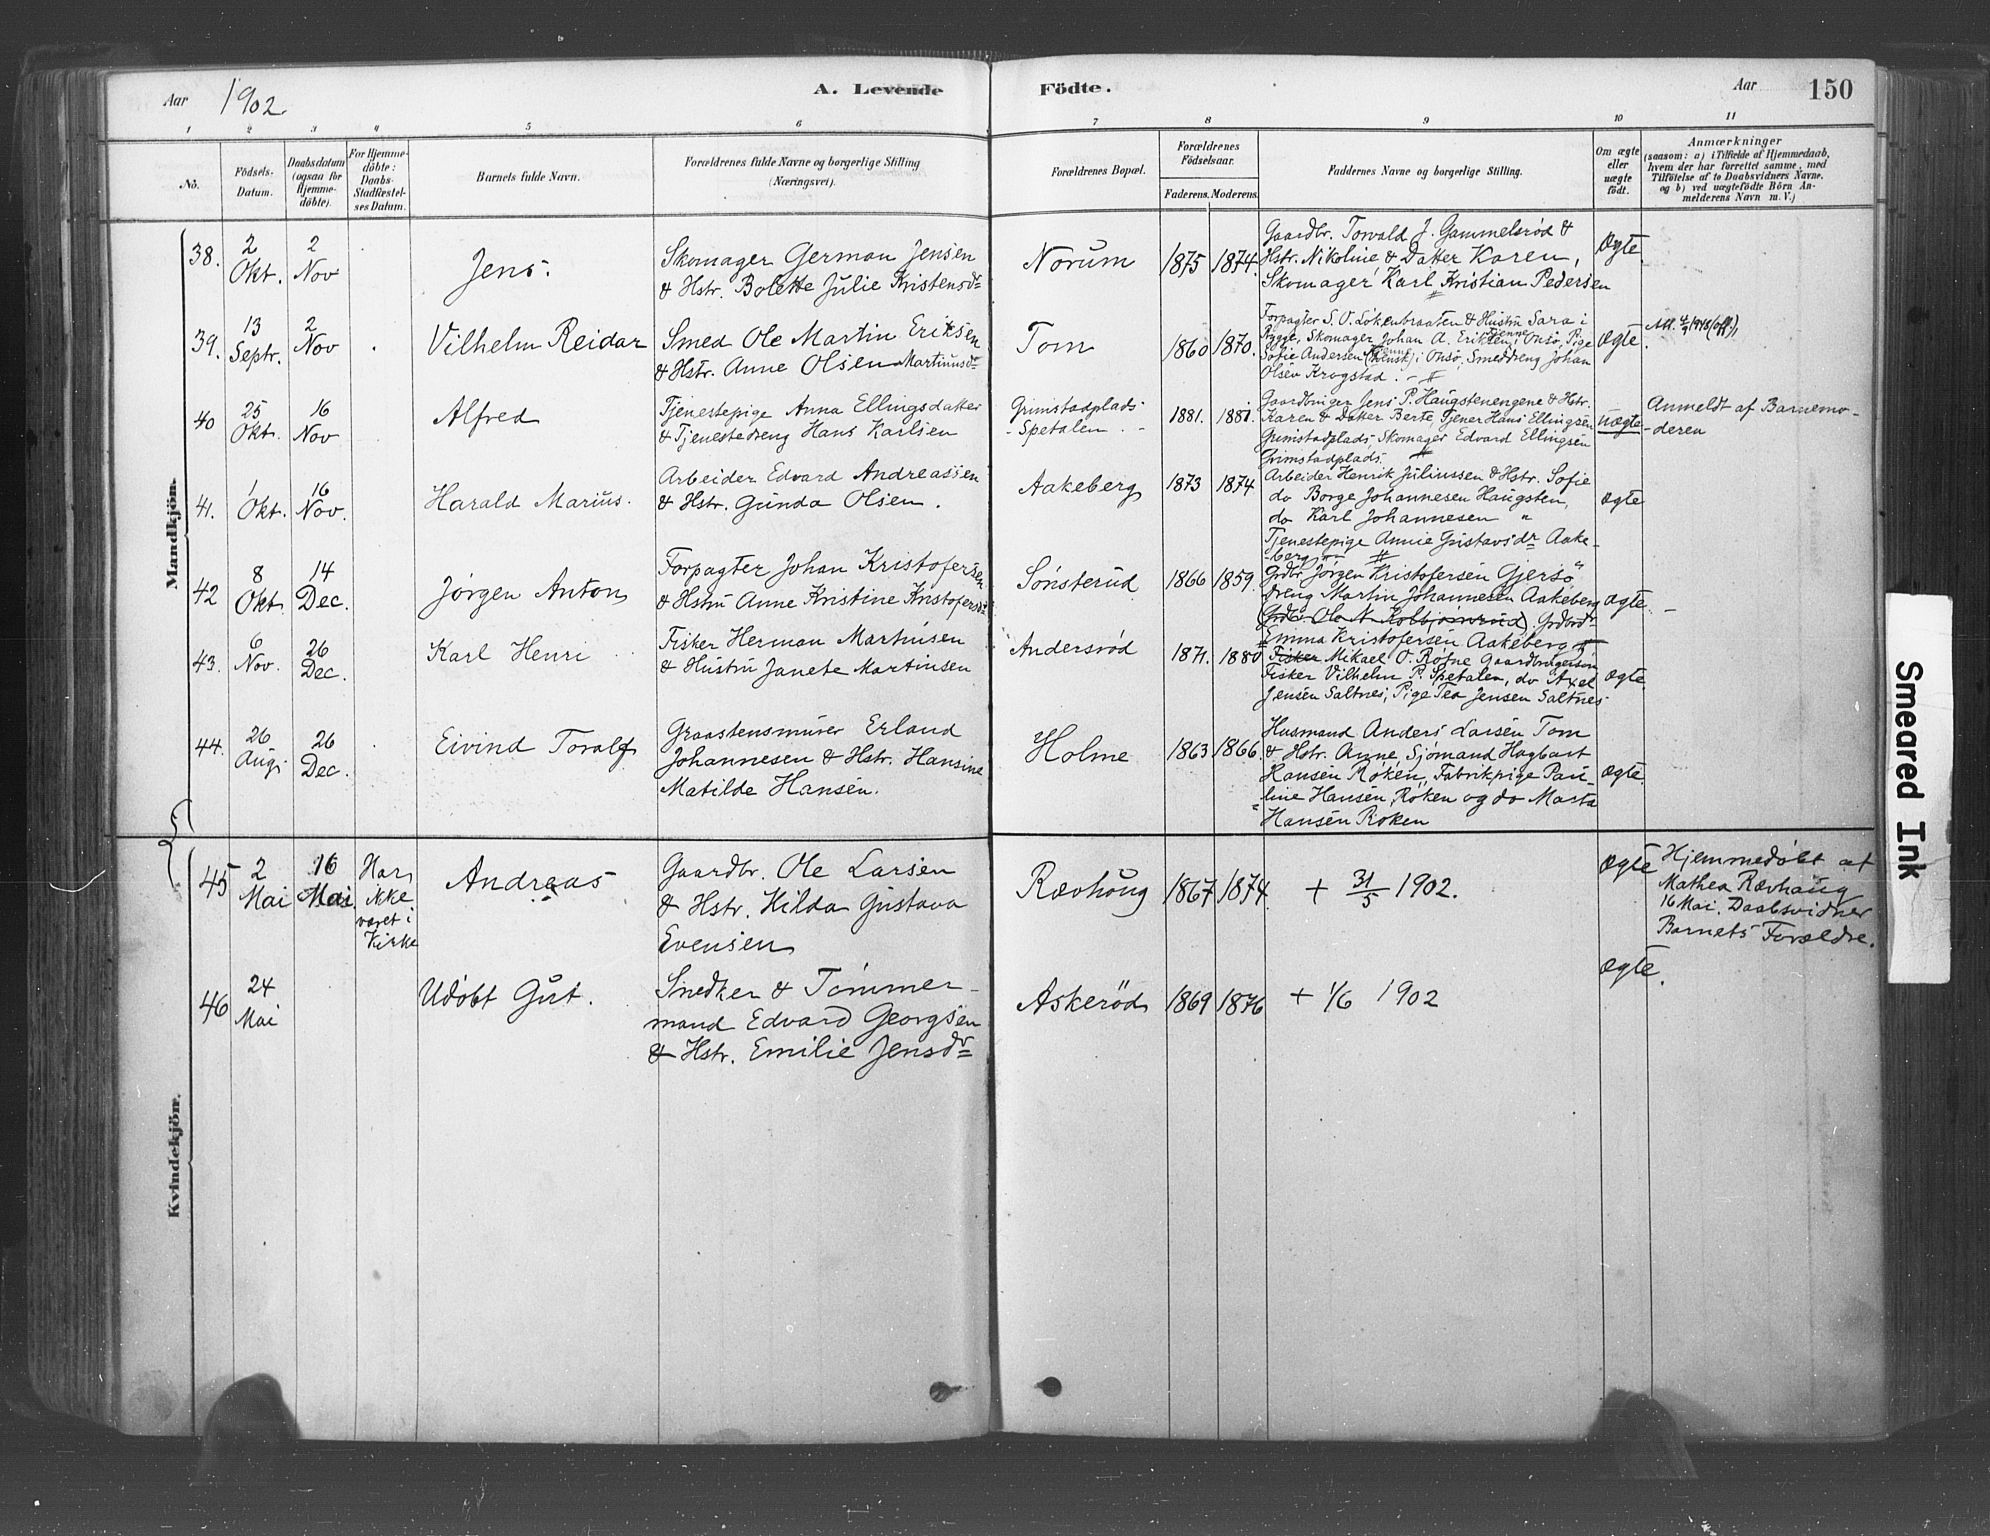 Aar 1902. A. Levende Födte. Aar 150
1 2 3 4 5 6 7 8 9 10 11
No.
Födsels-
Datum.
Daabsdatum
(ogsaa for
Hjemme-
döbte).
For Hjemme-
döbte:
Daabs-
Stadfæstel-
ses Datum.
Barnets fulde Navn.
Forældrenes fulde Navne og borgerlige Stilling
(Næringsvei).
Forældrenes Bopæl.
Forældrenes
Födselsaar.
Faderens. Moderens.
Faddernes Navne og borgerlige Stilling.
Om ægte
eller
uægte
födt.
Anmærkninger
(saasom: a) i Tilfælde af Hjemmedaab,
hvem der har forrettet samme, med
Tilföielse af to Daabsvidners Navne,
og b) ved uægtefödte Börn An-
melderens Navn m. V.)
Mandkjön.
38.
2
Okt.
2
Nov
Jens.
Skomager German Jensen
& Hstr. Bolette Julie Kristensdr
Norum
1875 1874.
Gaardbr. Torvald J. Gammelsrød &
Hstr. Nikoline & Datter Karen,
Skomager Karl Kristian Pedersen
Ægte
39.
13
Septr.
2
Nov
Vilhelm Reidar
Smed Ole Martin Eriksen
& Hstr. Anne Olsen Martinusdr
Tom
1860 1870.
Forpagter S. O. Løkenbraaten & Hustru Sara i
Rygge, Skomager Johan A. Eriksen, Onsø, Pige
Sofie Andersen (svensk) i Onsø, Smeddreng Johan
Olsen Krogstad.
Ægte
40
25
Okt.
16
Nov
Alfred
Tjenestepige Anna Ellingsdatter
& Tjenestedreng Hans Karlsen
Grimstadplads-
-Spetalen.
1881. 1881.
Gaardbruger Jens P. Haugstenengene & Hstr.
Karen & Datter Berte, Tjener Hans Ellingsen
Grimstadplads, Skomager Edvard Ellingsen
Grimstadplads.
uægte
Anmeldt af Barnemo-
-deren
41.
1
Okt.
16
Nov.
Harald Marius.
Arbeider Edvard Andreassen
& Hstr. Gunda Olsen.
Aakeberg
1873 1874
Arbeider Henrik Juliussen & Hstr. Sofie
do Borge Johannesen Haugsten,
do Karl Johannesen "
Tjenestepige Annie Gustavsdr Aake-
-berg
ægte
42
8
Okt.
14
Dec.
Jørgen Anton
Forpagter Johan Kristofersen
& Hstru Anne Kristine Kristofersdr
Sønsterud
1866 1859.
Grdbr. Jørgen Kristofersen Gjersø,
Dreng Martin Johannesen Aakeberg
(Grdbr. Ole N. Kolbjørnrud)
Emma Kristofersen Aakeberg
ægte
43.
6
Nov.
26
Dec.
Karl Henri
Fisker Herman Martinsen
& Hustru Janete Martinsen
Andersrød
1871. 1880
Fisker Mikael O. Røsne Gaardbrugersøn
Fisker Vilhelm P. Spetalen, do Axel
Jensen Saltnes, Pige Tea Jensen Saltnes
ægte.
44.
26
Aug.
26
Dec.
Eivind Toralf
Graastensmurer Erland
Johannesen & Hstr. Hansine
Matilde Hansen.
Holme
1863 1866.
Husmand Anders Larsen Tom
& Hstr. Anne, Sjømand Hagbart
Hansen Røken, Fabrikpige Pau-
line Hansen, Røken og do Marta
Hansen Røken
ægte
Kvindekjön.
45
2
Mai
16
Mai
Har
ikke
været i
Kirke
Andreas
Gaardbr. Ole Larsen
& Hstr. Hilda Gustava
Evensen
Rævhoug
1867 1874
+ 31/5 1902.
ægte
Hjemmedøbt af
Mathea Rævhaug
16 Mai. Daabsvidner
Barnets Forældre.
46
24
Mai
Udøbt Gut.
Snedker & Tømmer-
mand Edvard Georgsen
& Hstr. Emilie Jensdr
Askerød
1869 1876
+ 1/6 1902
ægte.
Smeared Ink